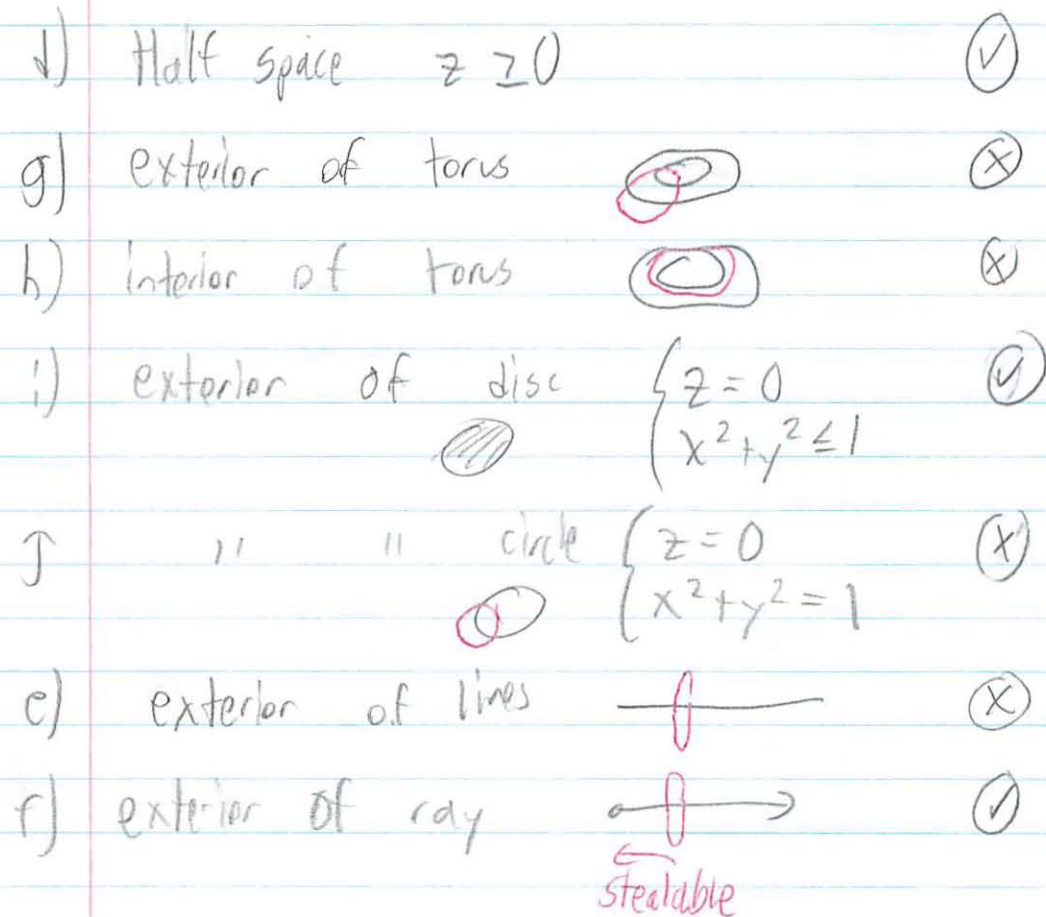 d) Half space z ≥ 0
g) exterior of torus
h) interior of torus
i) exterior of disc { z = 0
x² + y² ≤ 1
J " " circle { z = 0
x² + y² = 1
e) exterior of lines
f) exterior of ray
stealable